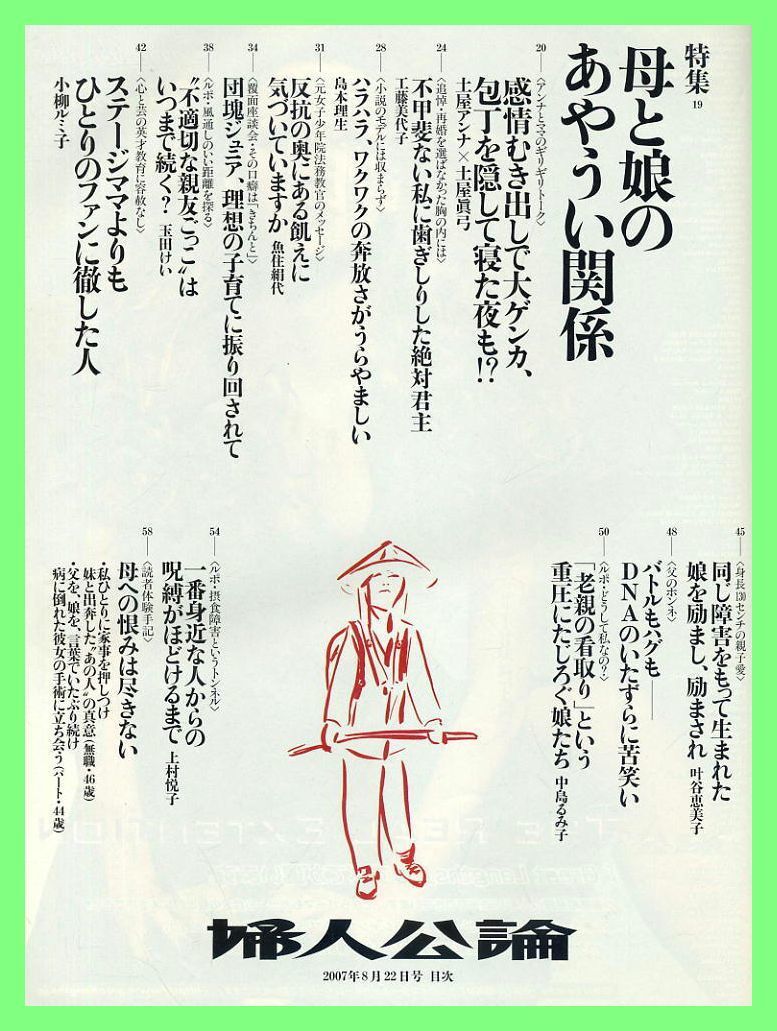 特集 19
母と娘の
あやうい関係
20
〈アンナとママのギリギリトーク〉
感情むき出しで大ゲンカ、
包丁を隠して寝た夜も!?
土屋アンナ×土屋眞弓
24
〈追悼・再婚を選ばなかった胸の内には〉
不甲斐ない私に歯ぎしりした絶対君主
工藤美代子
28
〈小説のモデルには収まらず〉
ハラハラ、ワクワクの奔放さがうらやましい
島本理生
31
〈元女子少年院法務教官のメッセージ〉
反抗の奥にある飢えに
気づいていますか 魚住絹代
34
〈覆面座談会・その口癖は「きちんと」〉
団塊ジュニア、理想の子育てに振り回されて
38
〈ルポ・風通しのいい距離を探る〉
“不適切な親友ごっこ”は
いつまで続く? 玉田けい
42
〈心と芸の英才教育に容赦なし〉
ステージママよりも
ひとりのファンに徹した人
小柳ルミ子
45
〈身長130センチの親子愛〉
同じ障害をもって生まれた
娘を励まし、励まされ 叶谷恵美子
48
〈父のホンネ〉
バトルもハグも――
DNAのいたずらに苦笑い
50
〈ルポ・どうして私なの?〉
「老親の看取り」という
重圧にたじろぐ娘たち 中島るみ子
54
〈ルポ・摂食障害というトンネル〉
一番身近な人からの
呪縛がほどけるまで 上村悦子
58
〈読者体験手記〉
母への恨みは尽きない
・私ひとりに家事を押しつけ
妹と出奔した“あの人”の真意(無職・46歳)
・父を、娘を、言葉でいたぶり続け
病に倒れた彼女の手術に立ち会う(パート・44歳)
婦人公論
2007年8月22日号 目次